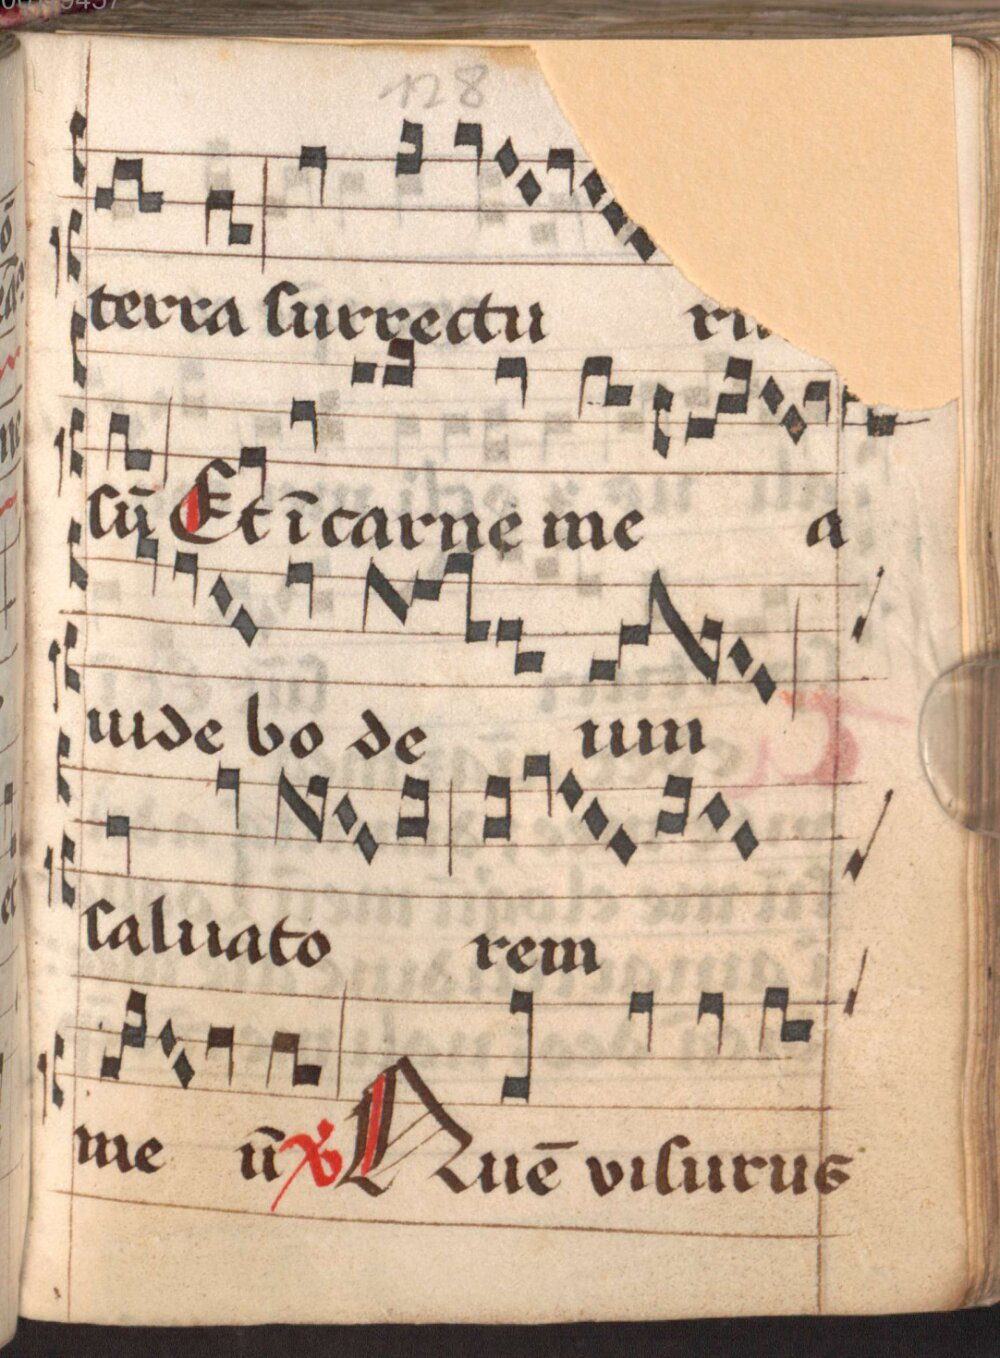 128
terra surrectu ru
sū Et ī carne me a
uide bo de um
saluato rem
me ū ℣ Quē visurus